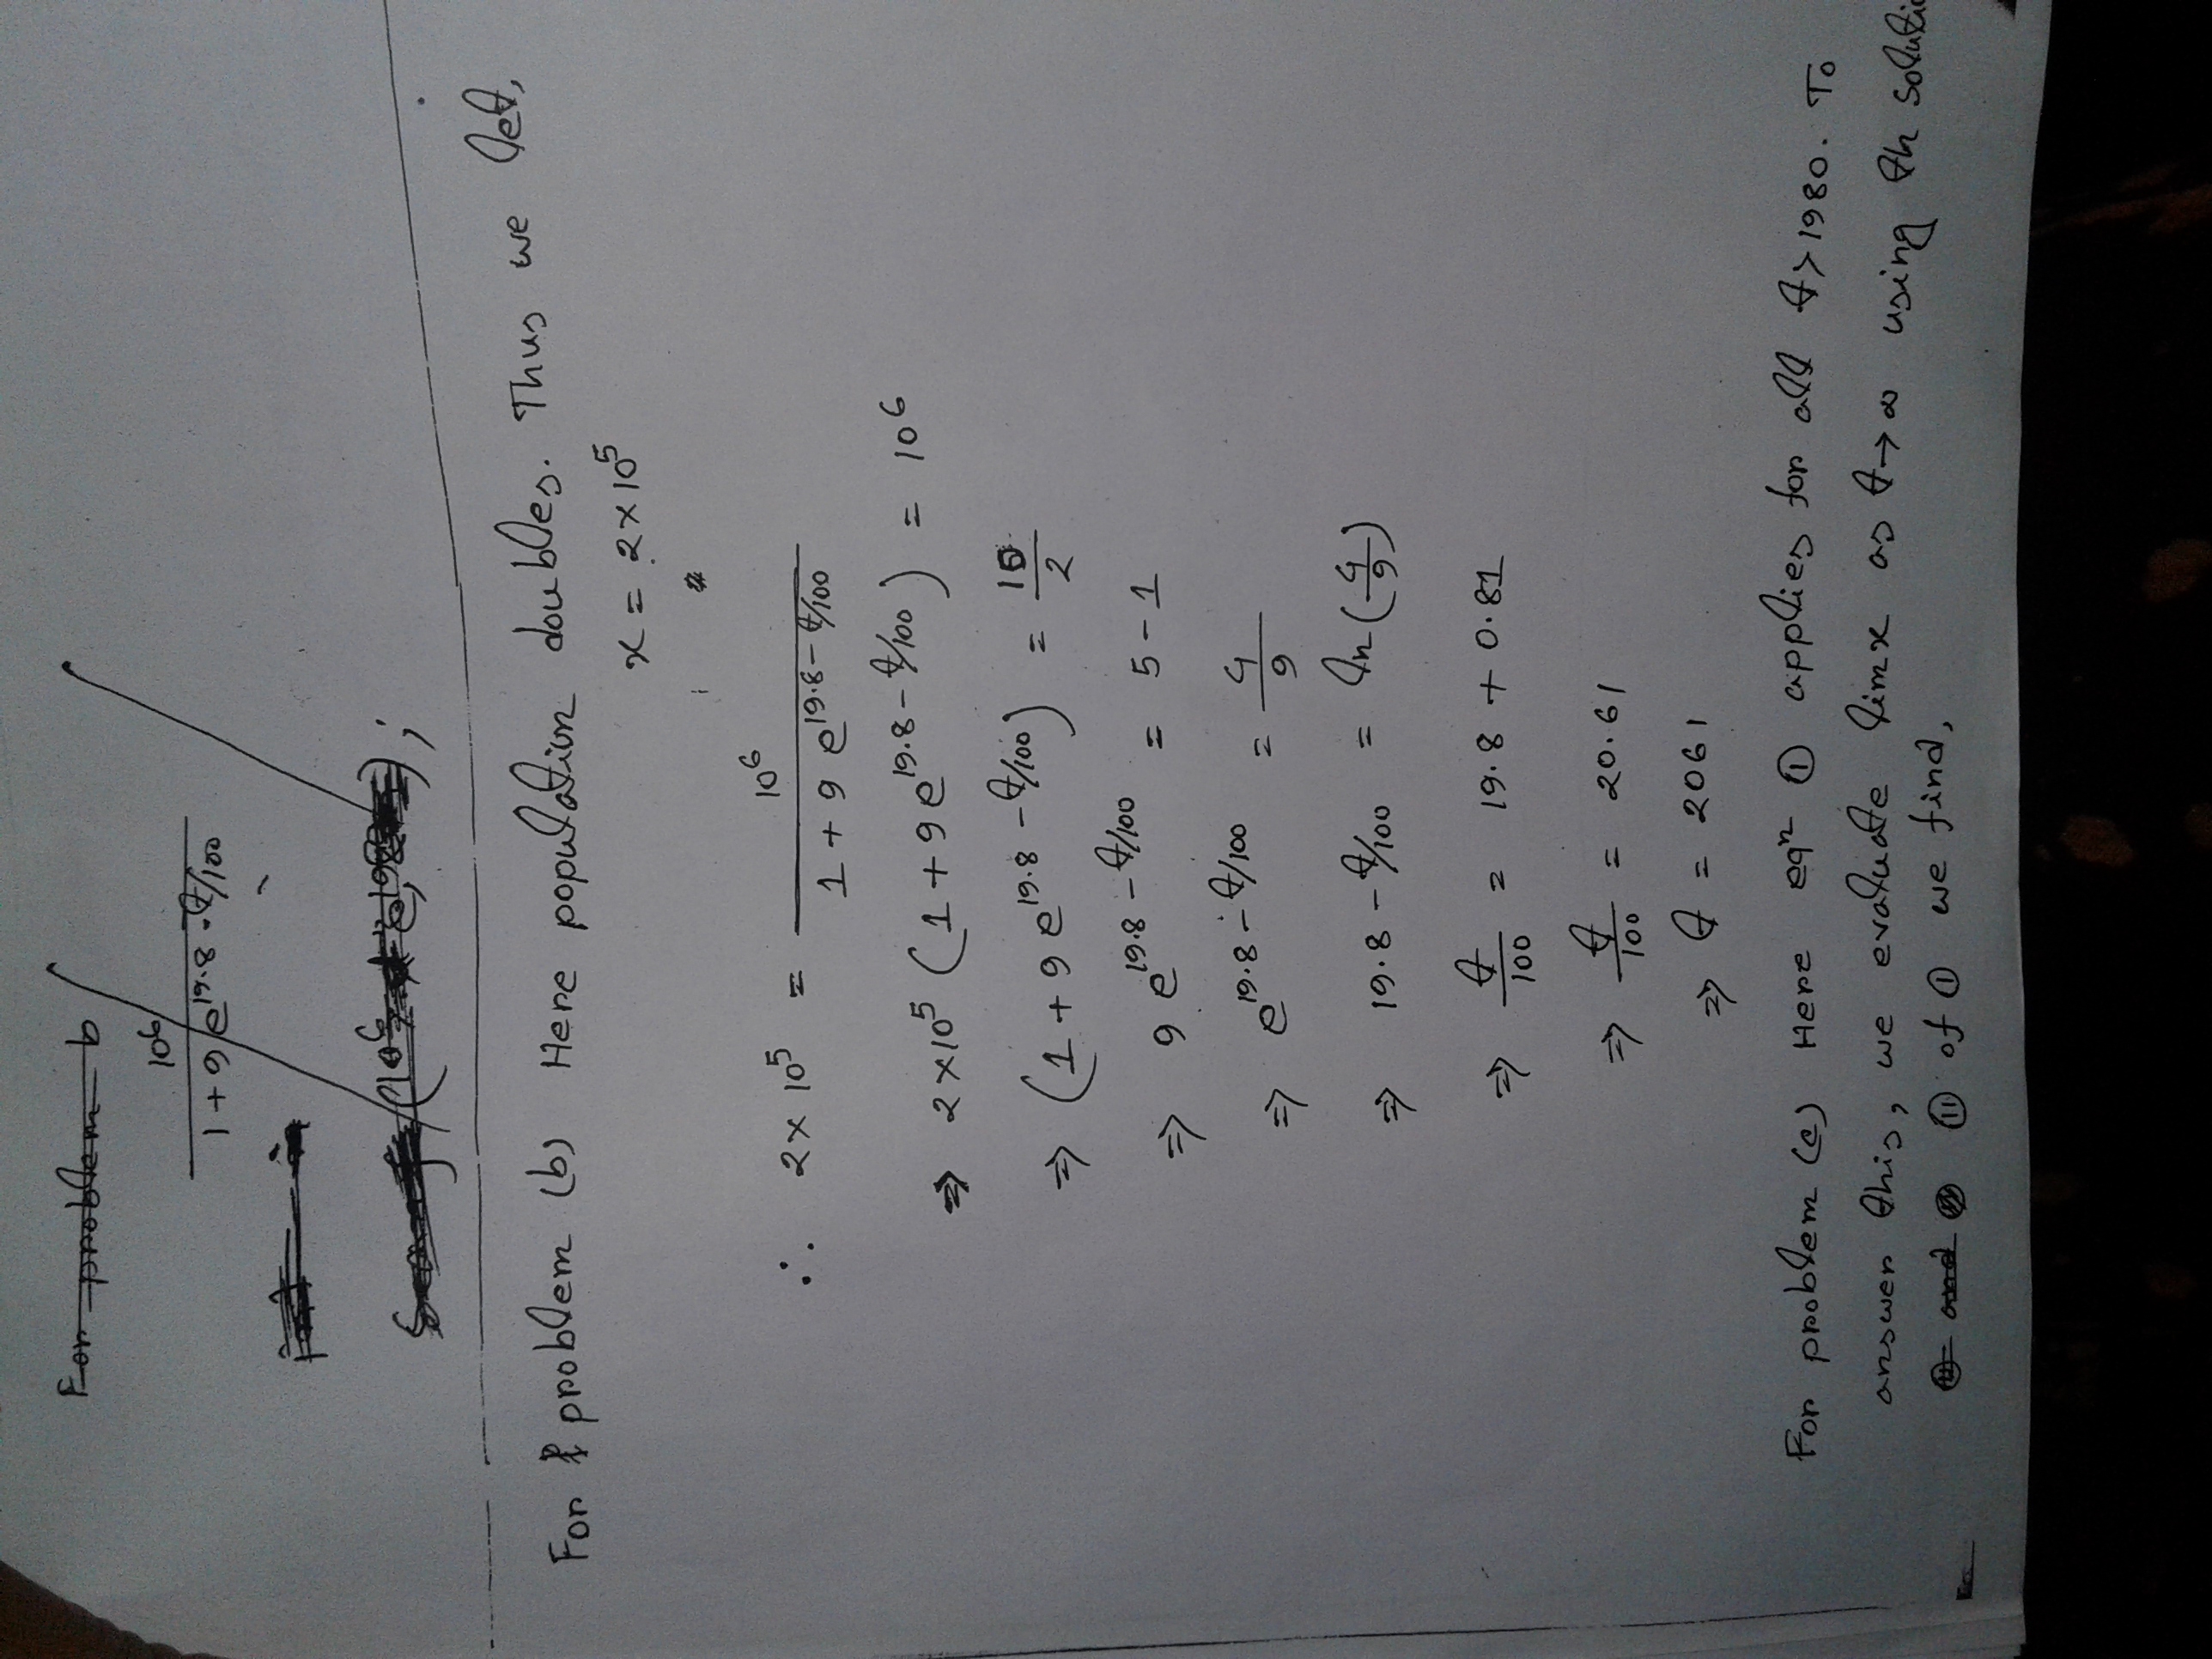 For problem b
10⁶
1 + 9 e^19.8 - t/100
(10⁶ );
For problem (b) Here population doubles. Thus we let,
x = 2 × 10⁵
∴ 2 × 10⁵ = 10⁶ / 1 + 9 e^19.8 - t/100
⇒ 2 × 10⁵ (1 + 9 e^19.8 - t/100) = 10⁶
⇒ (1 + 9 e^19.8 - t/100) = 10/2
⇒ 9 e^19.8 - t/100 = 5 - 1
⇒ e^19.8 - t/100 = 4/9
⇒ 19.8 - t/100 = ln (4/9)
⇒ t/100 = 19.8 + 0.81
⇒ t/100 = 20.61
⇒ t = 2061
For problem (c) Here eqⁿ ① applies for all t > 1980. To
answer this, we evaluate lim x as t → ∞ using th soluti
and ⑪ of ① we find,